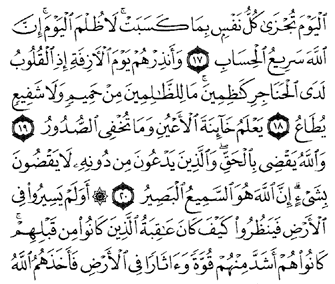 ٱلۡيَوۡمَ تُجۡزَىٰ كُلُّ نَفۡسِۭ بِمَا كَسَبَتۡۚ لَا ظُلۡمَ ٱلۡيَوۡمَۚ إِنَّ
ٱللَّهَ سَرِيعُ ٱلۡحِسَابِ ١٧ وَأَنذِرۡهُمۡ يَوۡمَ ٱلۡأٓزِفَةِ إِذِ ٱلۡقُلُوبُ
لَدَى ٱلۡحَنَاجِرِ كَٰظِمِينَۚ مَا لِلظَّٰلِمِينَ مِنۡ حَمِيمٖ وَلَا شَفِيعٖ
يُطَاعُ ١٨ يَعۡلَمُ خَآئِنَةَ ٱلۡأَعۡيُنِ وَمَا تُخۡفِي ٱلصُّدُورُ ١٩
وَٱللَّهُ يَقۡضِي بِٱلۡحَقِّۖ وَٱلَّذِينَ يَدۡعُونَ مِن دُونِهِۦ لَا يَقۡضُونَ
بِشَيۡءٍۗ إِنَّ ٱللَّهَ هُوَ ٱلسَّمِيعُ ٱلۡبَصِيرُ ٢٠ ۞ أَوَلَمۡ يَسِيرُواْ فِي
ٱلۡأَرۡضِ فَيَنظُرُواْ كَيۡفَ كَانَ عَٰقِبَةُ ٱلَّذِينَ كَانُواْ مِن قَبۡلِهِمۡۚ
كَانُواْ هُمۡ أَشَدَّ مِنۡهُمۡ قُوَّةٗ وَءَاثَارٗا فِي ٱلۡأَرۡضِ فَأَخَذَهُمُ ٱللَّهُ